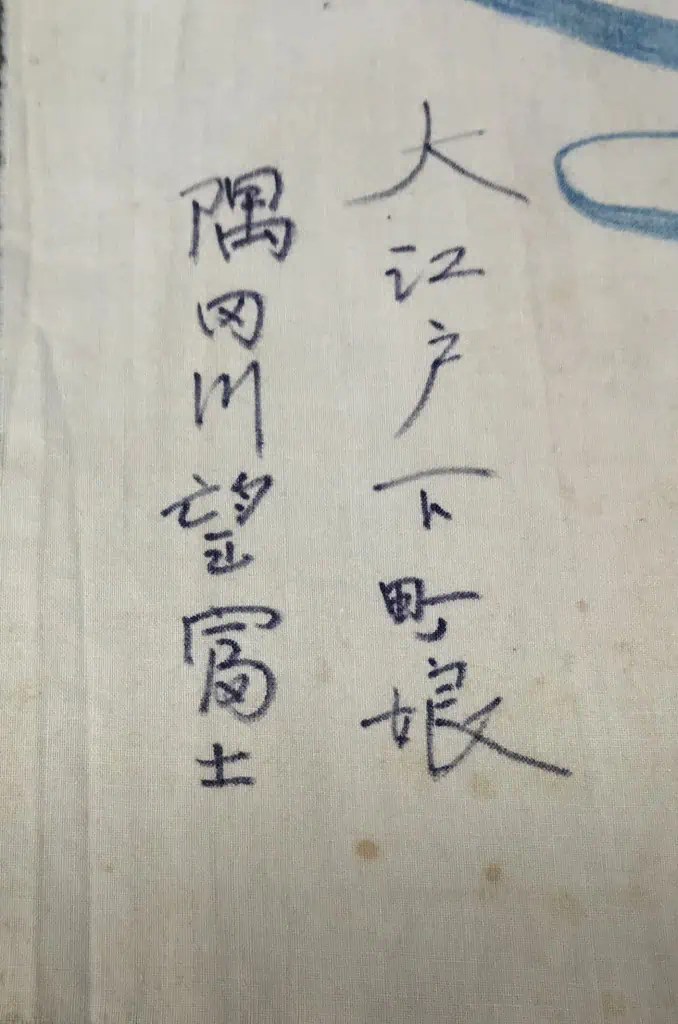 大江戸下町娘
隅田川望富士